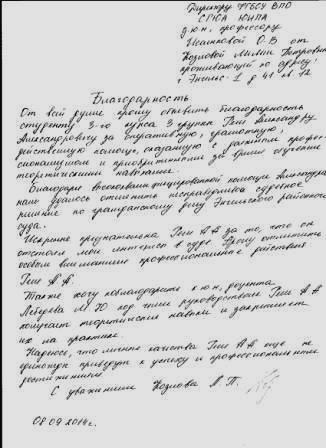 Директору ФГБОУ ВПО
СГЮА ЮИПА
д.ю.н., профессору
Исаенковой О.В от
Козловой Лилии Петровны
проживающей по адресу:
г Энгельс-1 д 41 кв 12
Благодарность
От всей души прошу объявить благодарность
студенту 3-го курса 3 группы Гет Александру
Александровичу за оперативную, грамотную,
действенную помощь, оказанную с высоким профес-
сионализмом и приобретенными за время обучения
теоретическими навыками.
Благодаря высококвалифицированной помощи Александра
нам удалось отменить несправедливое судебное
решение по гражданскому делу Энгельсского районного
суда.
Искренне признательна А А за то, что он
отстоял мои интересы в суде. Прошу отметить
особым вниманием профессиональные действия
А.А.
Также хочу поблагодарить к.ю.н, доцента
Лебедева М.Ю под чьим руководством А А
получает теоретические навыки и закрепляет
их на практике.
Надеюсь, что личные качества А А еще не
единожды приведут к успеху и профессиональным
достижениям.
С уважением Козлова Л.П.
08 09 2014г.